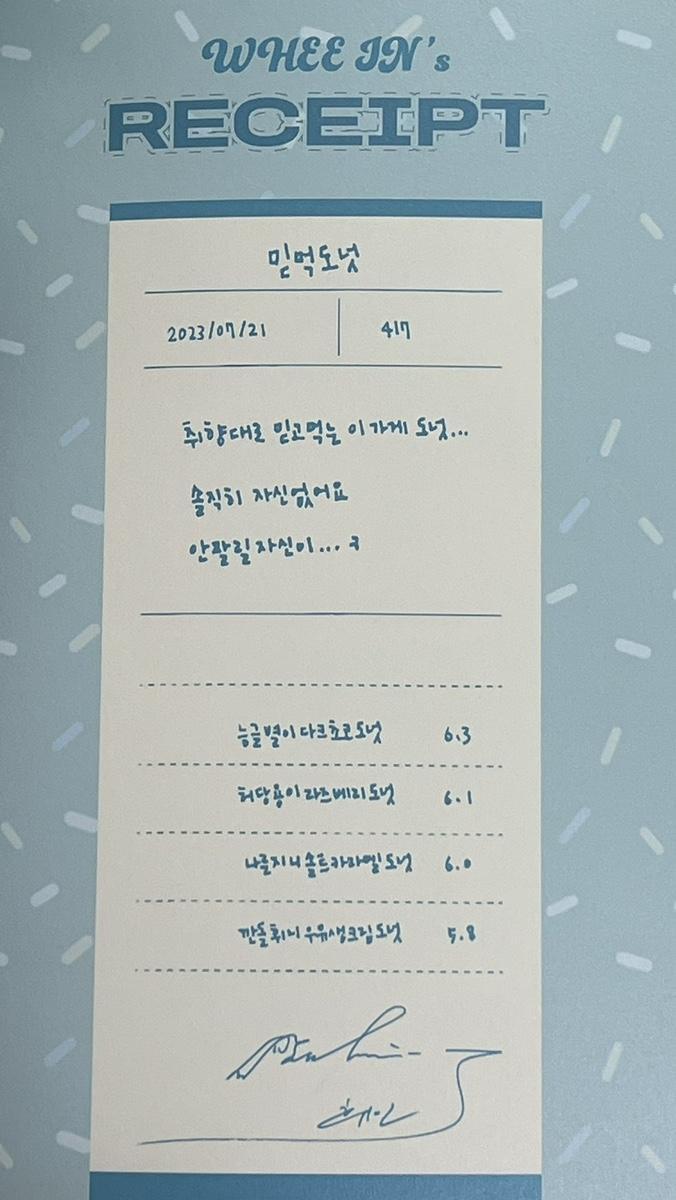 WHEE IN's
RECEIPT
믿먹도넛
2023/07/21 417
취향대로 믿고먹는 이 가게 도넛...
솔직히 자신없어요
안팔릴자신이... ㅋ
능글별이다크초코도넛 6.3
허당용이라즈베리도넛 6.1
나곰지니솔트카라멜도넛 6.0
깐돌휘니우유생크림도넛 5.8
휘인